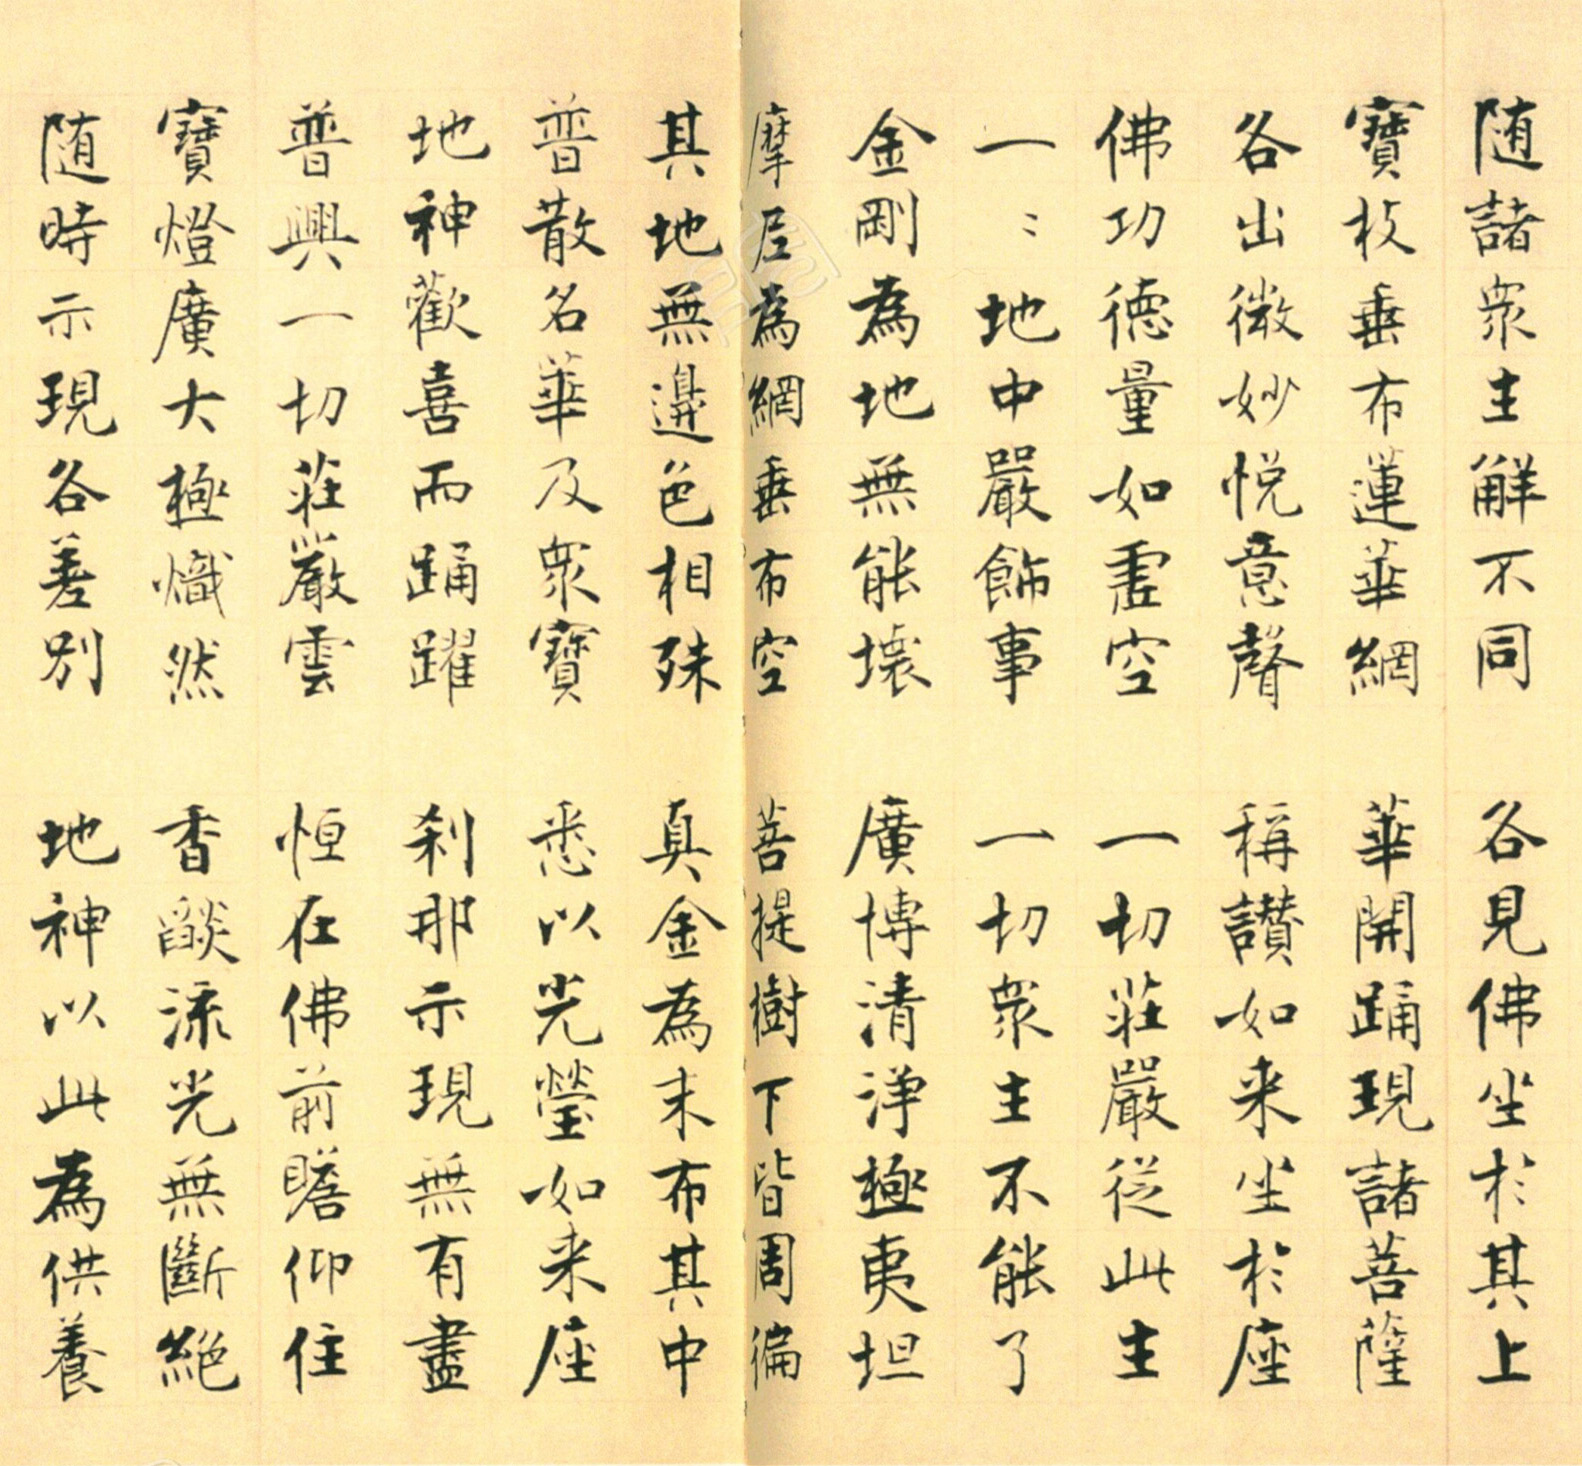 随諸衆生解不同　各見佛坐於其上
寶枝垂布蓮華網　華開踊現諸菩薩
各出微妙悦意聲　稱讃如来坐於座
佛功德量如虚空　一切莊嚴從此生
一〻地中嚴飾事　一切衆生不能了
金剛為地無能壞　廣博清淨極夷坦
摩尼為網垂布空　菩提樹下皆周徧
其地無邊色相殊　真金為末布其中
普散名華及衆寶　悉以光瑩如来座
地神歡喜而踊躍　刹那示現無有盡
普興一切莊嚴雲　恒在佛前瞻仰住
寶燈廣大極熾然　香燄流光無斷絶
随時示現各差別　地神以此為供養